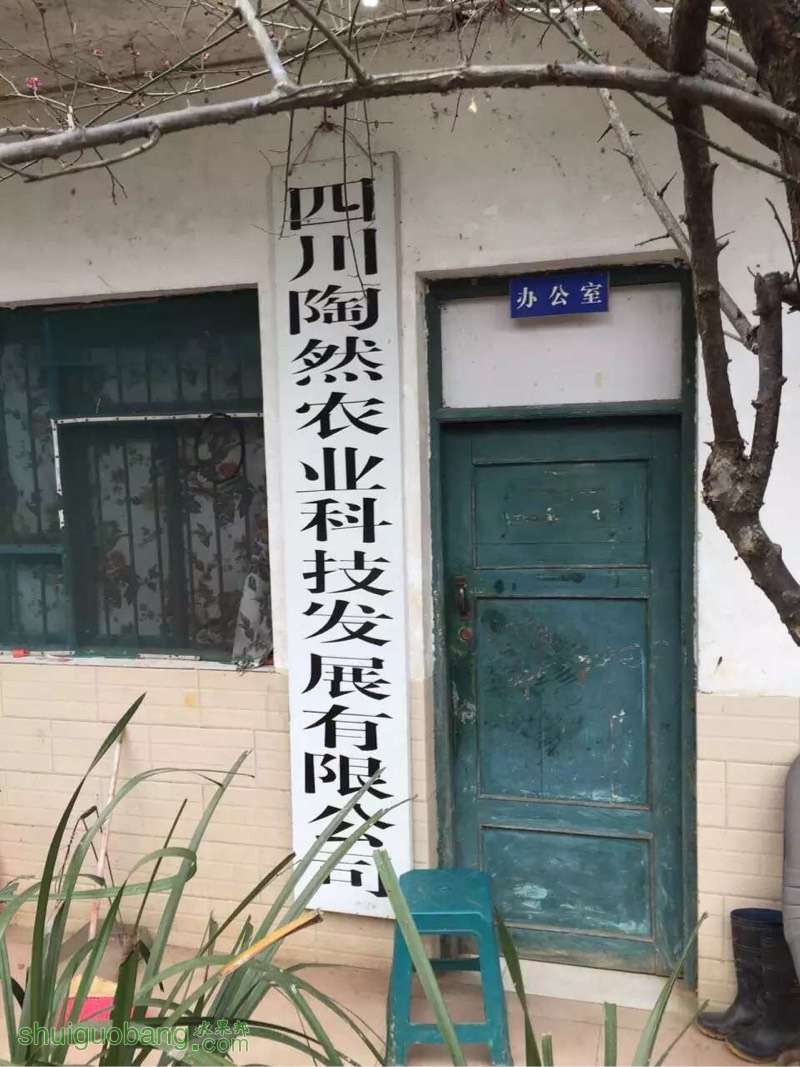 四川陶然农业科技发展有限公司
办公室
shuiguobang.com
水果邦